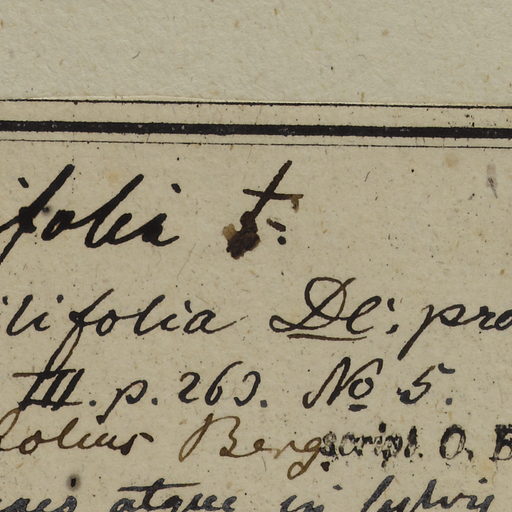 ifolia t.
ilifolia De: pro
III. p. 263. No 5.
folius Berg. script. O. B
atque in sylvis